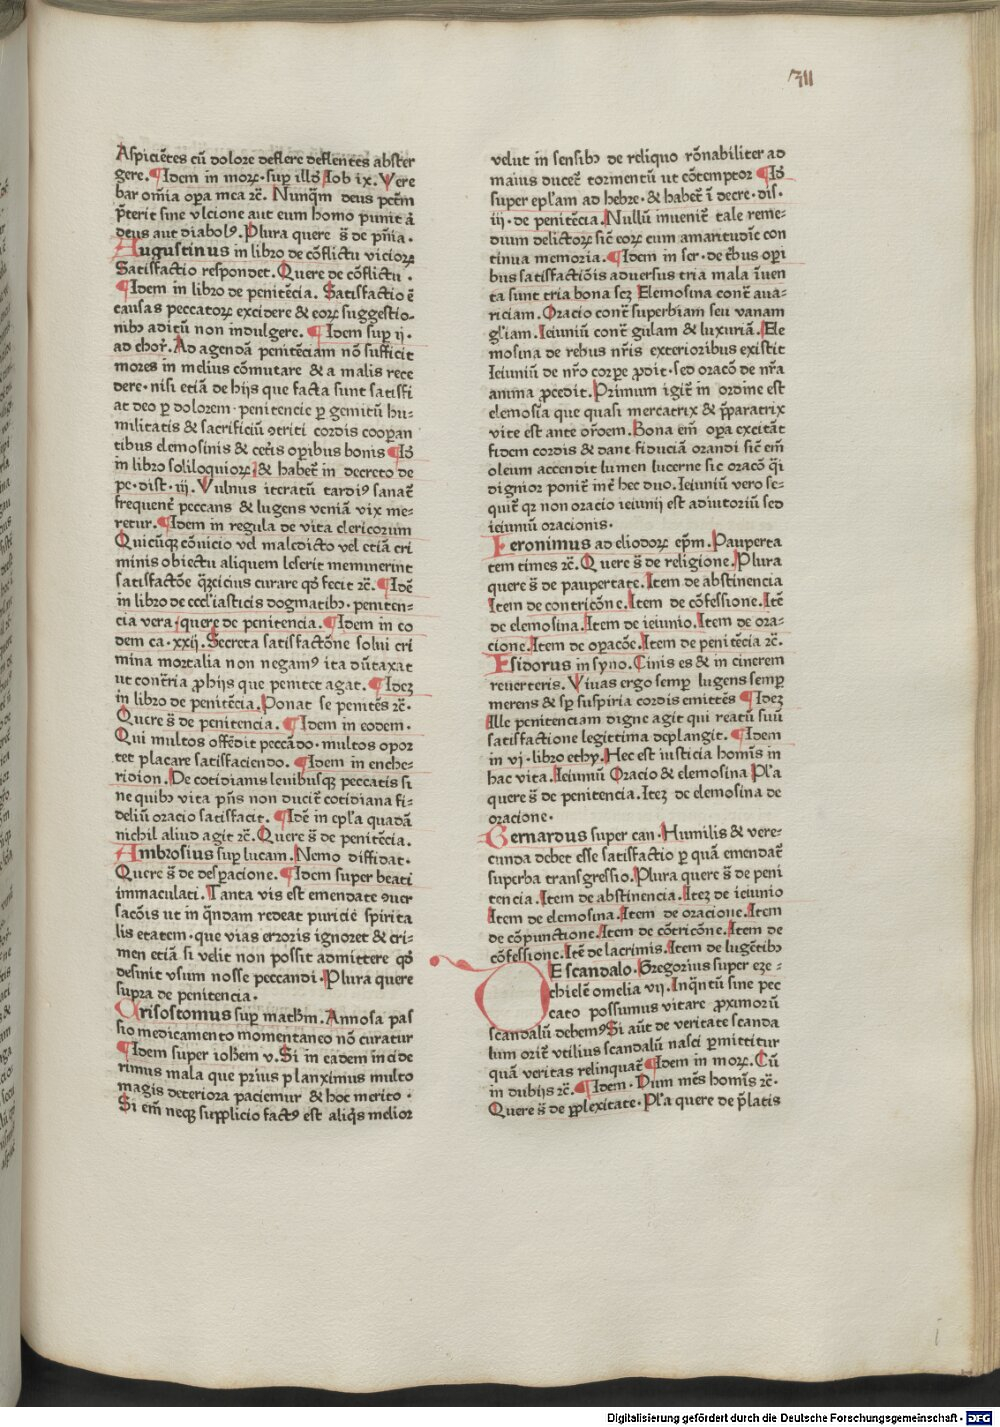 311
Aspiciētes cū dolore deflere deflentes abster
gere. ¶Idem in moꝝ· sup illo Iob ix. Vere
bar om̄ia opa mea ꝛc̄. Nunq̄m deus pctm̄
p̄terit sine vlcione aut eum homo punit aut
deus aut diabolꝰ. Plura quere s̄ de pn̄ia.
Augustinus in libro de cōflictu vicioꝝ
Satisfactio respondet. Quere de cōflictu.
¶Idem in libro de penitēcia. Satisfactio ē
causas peccatoꝝ excidere & eoꝝ suggestio-
nibꝰ aditū non indulgere. ¶Idem sup ij.
ad choꝝ. Ad agendā penitēciam nō sufficit
mores in melius cōmutare & a malis rece
dere· nisi etiā de hijs que facta sunt satisfi
at deo p dolorem· penitencie p gemitū hu-
militatis & sacrificiū ꝯtriti cordis coopan
tibus elemosinis & cet̄is opibus bonis ¶Itē
in libro soliloquioꝝ & habet̄ in decreto de
pe· dist· iij. Vulnus iteratū tardiꝰ sanat̄
frequent̄ peccans & lugens veniā vix me-
retur. ¶Idem in regula de vita clericorum
Quicūqꝫ cōuicio vel maledicto vel etiā cri
minis obiectu aliquem leserit meminerint
satisfactōe q̄ꝫcicius curare qđ fecit ꝛc̄. ¶Idē
in libro de eccl'iasticis dogmatibꝰ· peniten-
cia vera· quere de penitencia. ¶Idem in eo
dem ca· xxij. Secreta satisfactōne solui cri
mina mortalia non negamꝰ ita dūtaxat
ut contēria p hijs que penitet agat. ¶Idez
in libro de penitēcia. Ponat se penitēs ꝛc̄.
Quere s̄ de penitencia. ¶Idem in eodem.
Qui multos offēdit peccādo· multos opor
tet placare satisfaciendo. ¶Idem in enche-
ridion. De cotidianis leuibusqꝫ peccatis si
ne quibꝰ vita pn̄s non ducit̄ cotidiana fi-
deliū oracio satisfacit. ¶Idē in epl'a quadā
nichil aliud agit ꝛc̄. Quere s̄ de penitēcia.
Ambrosius sup lucam. Nemo diffidat.
Quere s̄ de despacione. ¶Idem super beati
immaculati. Tanta vis est emendate ꝯuer
sacōis ut in q̄ndam redeat puricie spirita
lis etatem· que vias erroris ignoret & cri-
men etiā si velit non possit admittere qđ
desinit vsum nosse peccandi. Plura quere
supra de penitencia.
Crisostomus sup mathm. Annosa pas
sio medicamento momentaneo nō curatur
¶Idem super iohem v. Si in eadem incide
rimus mala que prius planximus multo
magis deteriora paciemur & hoc merito·
Si em̄ neqꝫ supplicio factꝰ est aliq̄s melior
velut in sensibꝰ de reliquo rōnabiliter ad
maius ducet̄ tormentū ut cōtemptor ¶Idē
super epl'am ad hebre· & habet̄ ī decre· dis·
iij· de penitēcia. Nullū inuenit̄ tale reme-
dium delictoꝝ sic̄ eoꝝ cum amaritudīe con
tinua memoria. ¶Idem in ser· de t̄bus opi
bus satisfactiōis aduersus tria mala īuen
ta sunt tria bona scꝫ Elemosina cont̄ aua-
riciam. Oracio cont̄ superbiam seu vanam
gl'iam. Ieiuniū cont̄ gulam & luxuriā. Ele
mosina de rebus nr̄is exterioribus existit
Ieiuniū de nr̄o corpe pdit· sed oracō de nr̄a
anima pcedit. Primum igit̄ in ordine est
elemosia que quasi mercatrix & p̄paratrix
vite est ante or̄oem. Bona em̄ opa excitāt
fidem cordis & dant fiduciā orandi sic̄ em̄
oleum accendit lumen lucerne sic oracō q̄i
dignior ponit̄ int̄ hec duo. Ieiuniū vero se-
quit̄ qꝛ non oracio ieiunij est adiutoriū sed
ieiuniū oracionis.
Ieronimus ad eliodoꝝ ep̄m. Pauperta
tem times ꝛc̄. Quere s̄ de religione. Plura
quere s̄ de paupertate. Item de abstinencia
Item de contricōne. Item de cōfessione. Itē
de elemosina. Item de ieiunio. Item de ora-
cione. Item de opacōe. Item de penitēcia ꝛc̄.
Esidorus in syno. Cinis es & in cinerem
reuerteris. Viuas ergo semp lugens semp
merens & sp suspiria cordis emittēs ¶Idez
Ille penitenciam digne agit qui reatū suū
satisfactione legittima deplangit. ¶Idem
in vj· libro ethy. Hec est iusticia homīs in
hac vita. Ieiuniū Oracio & elemosina Pl'a
quere s̄ de penitencia. Itez de elemosina de
oracione.
Bernardus super can· Humilis & vere-
cunda debet esse satisfactio p quā emendat̄
superba transgressio. Plura quere s̄ de peni
tencia. Item de abstinencia. Itez de ieiunio
Item de elemosina. Item de oracione. Item
de cōpunctione. Item de cōtricōne. Item de
cōfessione. Itē de lacrimis. Item de lugētibꝰ
DE scandalo. Gregorius super eze-
chielē omelia vij. Inq̄ntū sine pec
cato possumus vitare pximorū
scandalū debemꝰ Si aūt de veritate scanda
lum orit̄ vtilius scandalū nasci pmittitur
quā veritas relinquat̄ ¶Idem in moꝝ. Cū
in dubijs ꝛc̄. ¶Idem· Dum mēs homīs ꝛc̄.
Quere s̄ de pplexitate. Pl'a quere de p̄latis
Digitalisierung gefördert durch die Deutsche Forschungsgemeinschaft - DFG